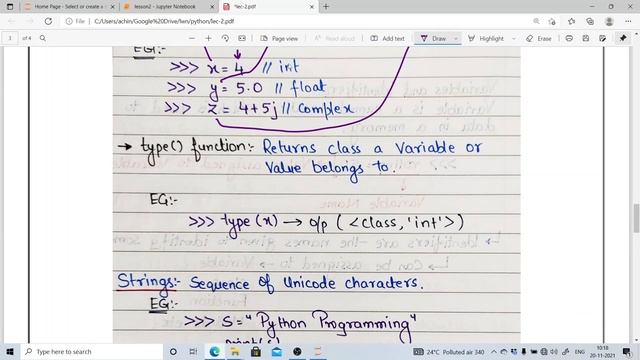 Home Page - Select or create a n
lesson2 - Jupyter Notebook
*lec-2.pdf
File | C:/Users/achin/Google%20Drive/hen/python/lec-2.pdf
1 of 4
Draw
EG:-
>>> x = 4 // int
>>> y = 5.0 // float
>>> z = 4+5j // Complex
→ type() function:- Returns class a Variable or
Value belongs to.
EG:-
>>> type(x) → o/p ( <class, 'int'>)
Strings:- Sequence of Unicode characters.
EG:-
>>> S= "Python Programming"
print(s)
Type here to search
24°C Polluted air 340
ENG
10:18
20-11-2021